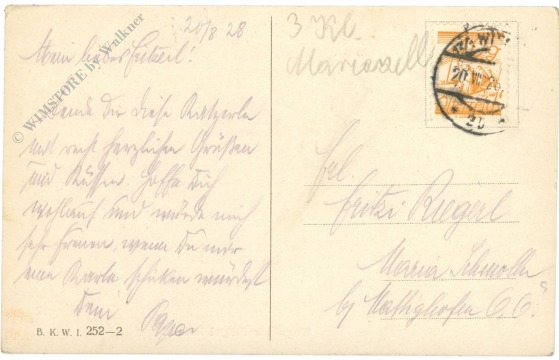 20/8 28
Mein liebes Fritzerl!
Sende Dir diese Kartzerln
mit recht herzlichen Grüßen
und Küssen. Hoffe Dich
wohlauf und würde mich
sehr freuen, wenn Du mir
eine Karte schicken würdest
Dein
Papa
B. K. W. I. 252—2
3 Kl.
Mariazell
WIEN
20. VIII. 28
Frl.
Fritzi Riegerl
Maria Schmolln
by Mattighofen O. Ö.
© WIMSTORE by Walkner